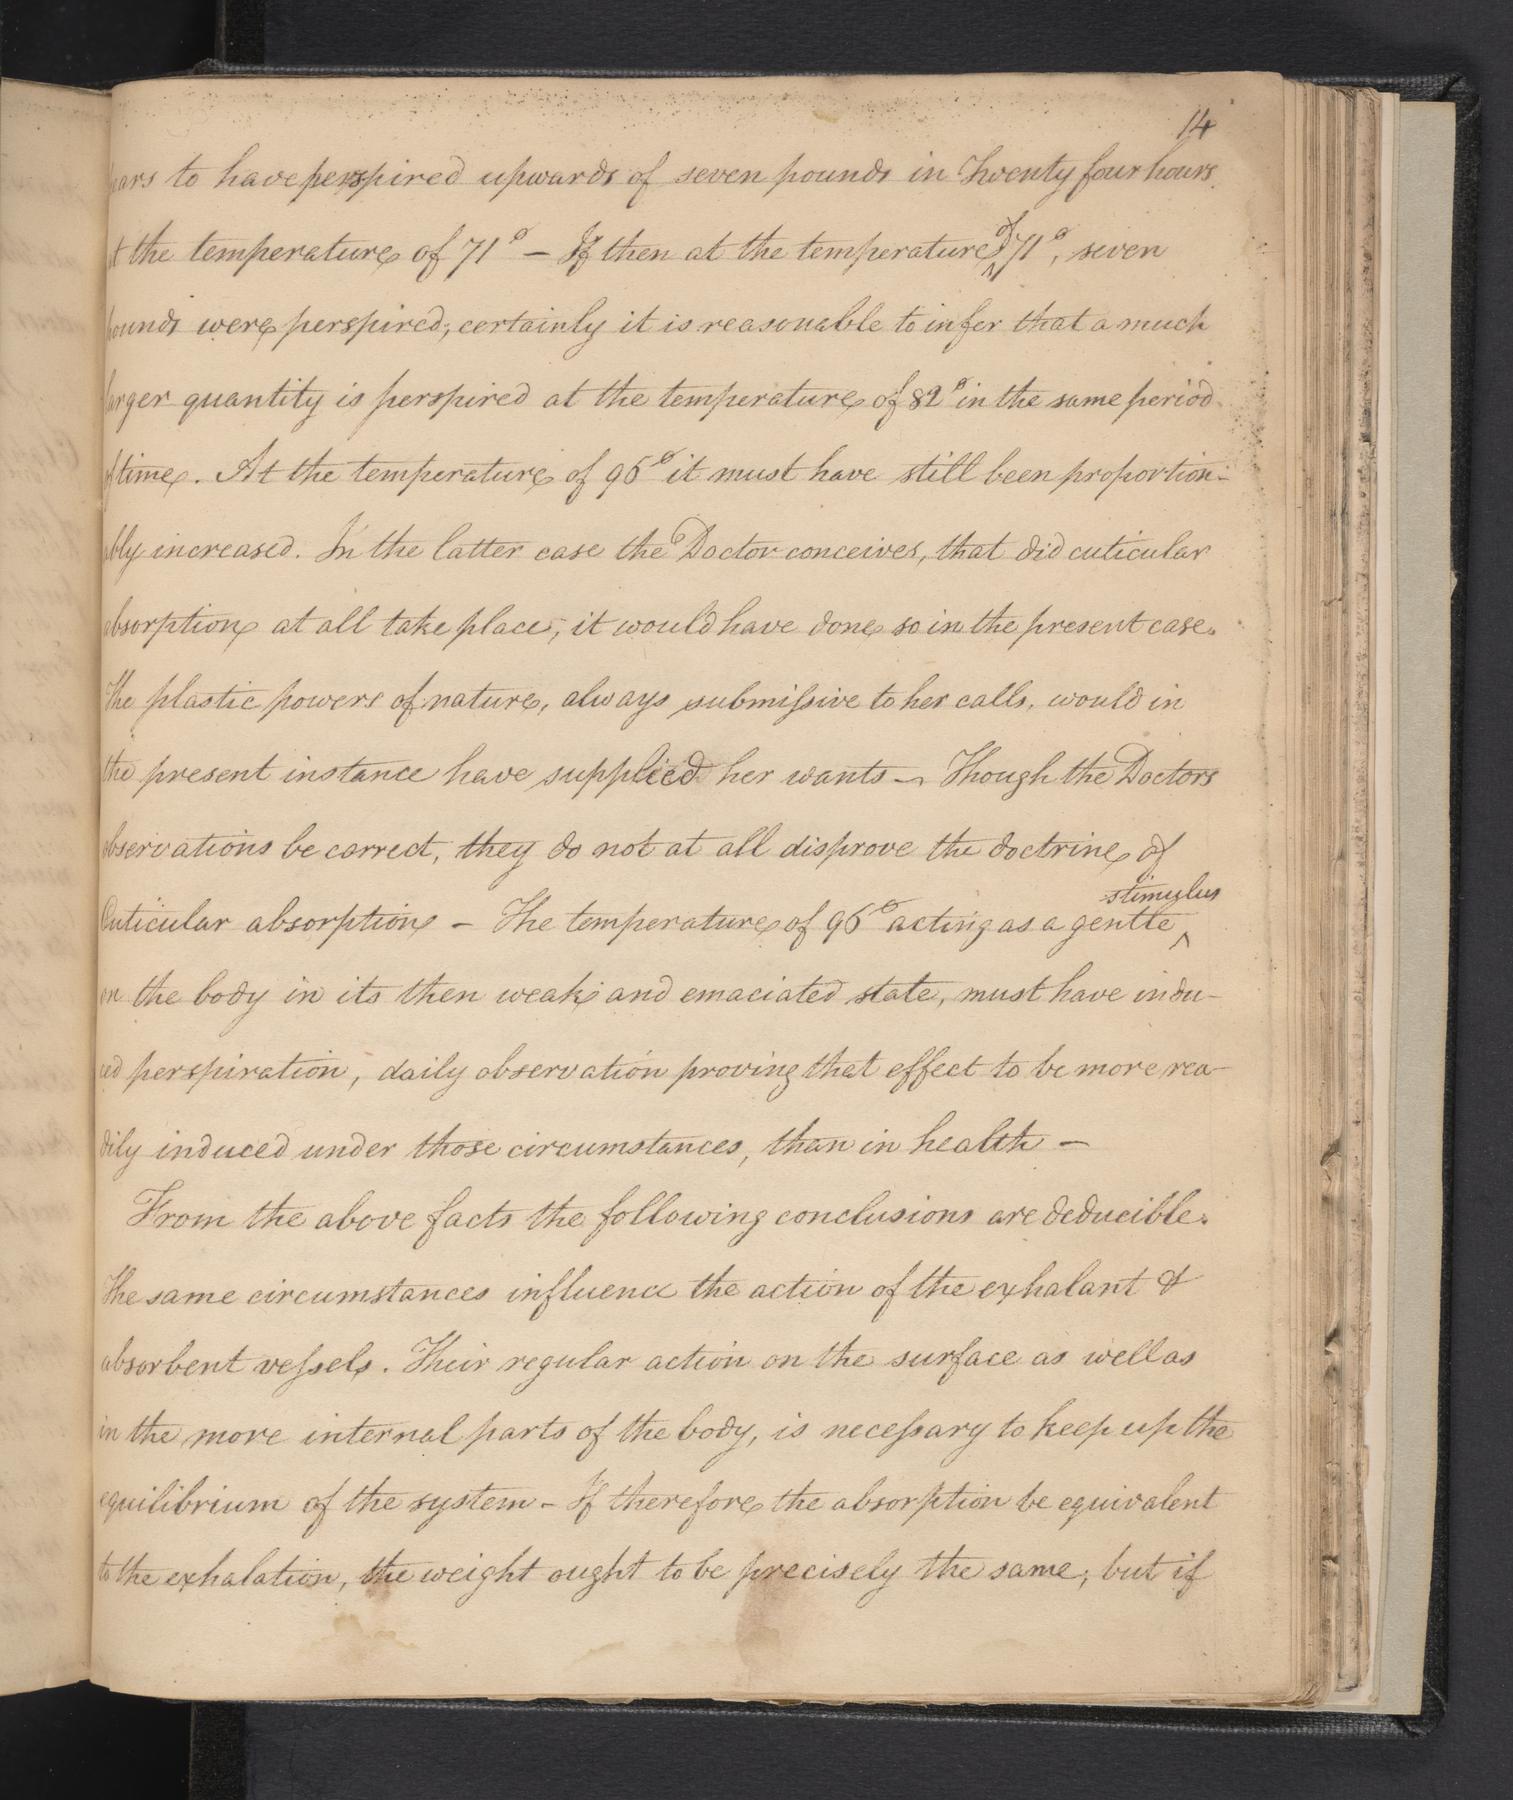 14
ears to have perspired upwards of seven pounds in Twenty four hours
at the temperature of 71° – If then at the temperature of 71°, seven
pounds were perspired; certainly it is reasonable to infer that a much
larger quantity is perspired at the temperature of 82° in the same period
of time. At the temperature of 96° it must have still been proportion-
ably increased. In the latter case the Doctor conceives, that did cuticular
absorption at all take place, it would have done so in the present case.
The plastic powers of nature, always submissive to her calls, would in
the present instance have supplied her wants – Though the Doctors
observations be correct, they do not at all disprove the doctrine of
Cuticular absorption – The temperature of 96° acting as a gentle stimulus
on the body in its then weak and emaciated state, must have indu-
ced perspiration, daily observation proving that effect to be more rea-
dily induced under those circumstances, than in health –
From the above facts the following conclusions are deducible.
The same circumstances influence the action of the exhalant &
absorbent vessels. Their regular action on the surface as well as
in the more internal parts of the body, is necessary to keep up the
equilibrium of the system – If therefore the absorption be equivalent
to the exhalation, the weight ought to be precisely the same; but if